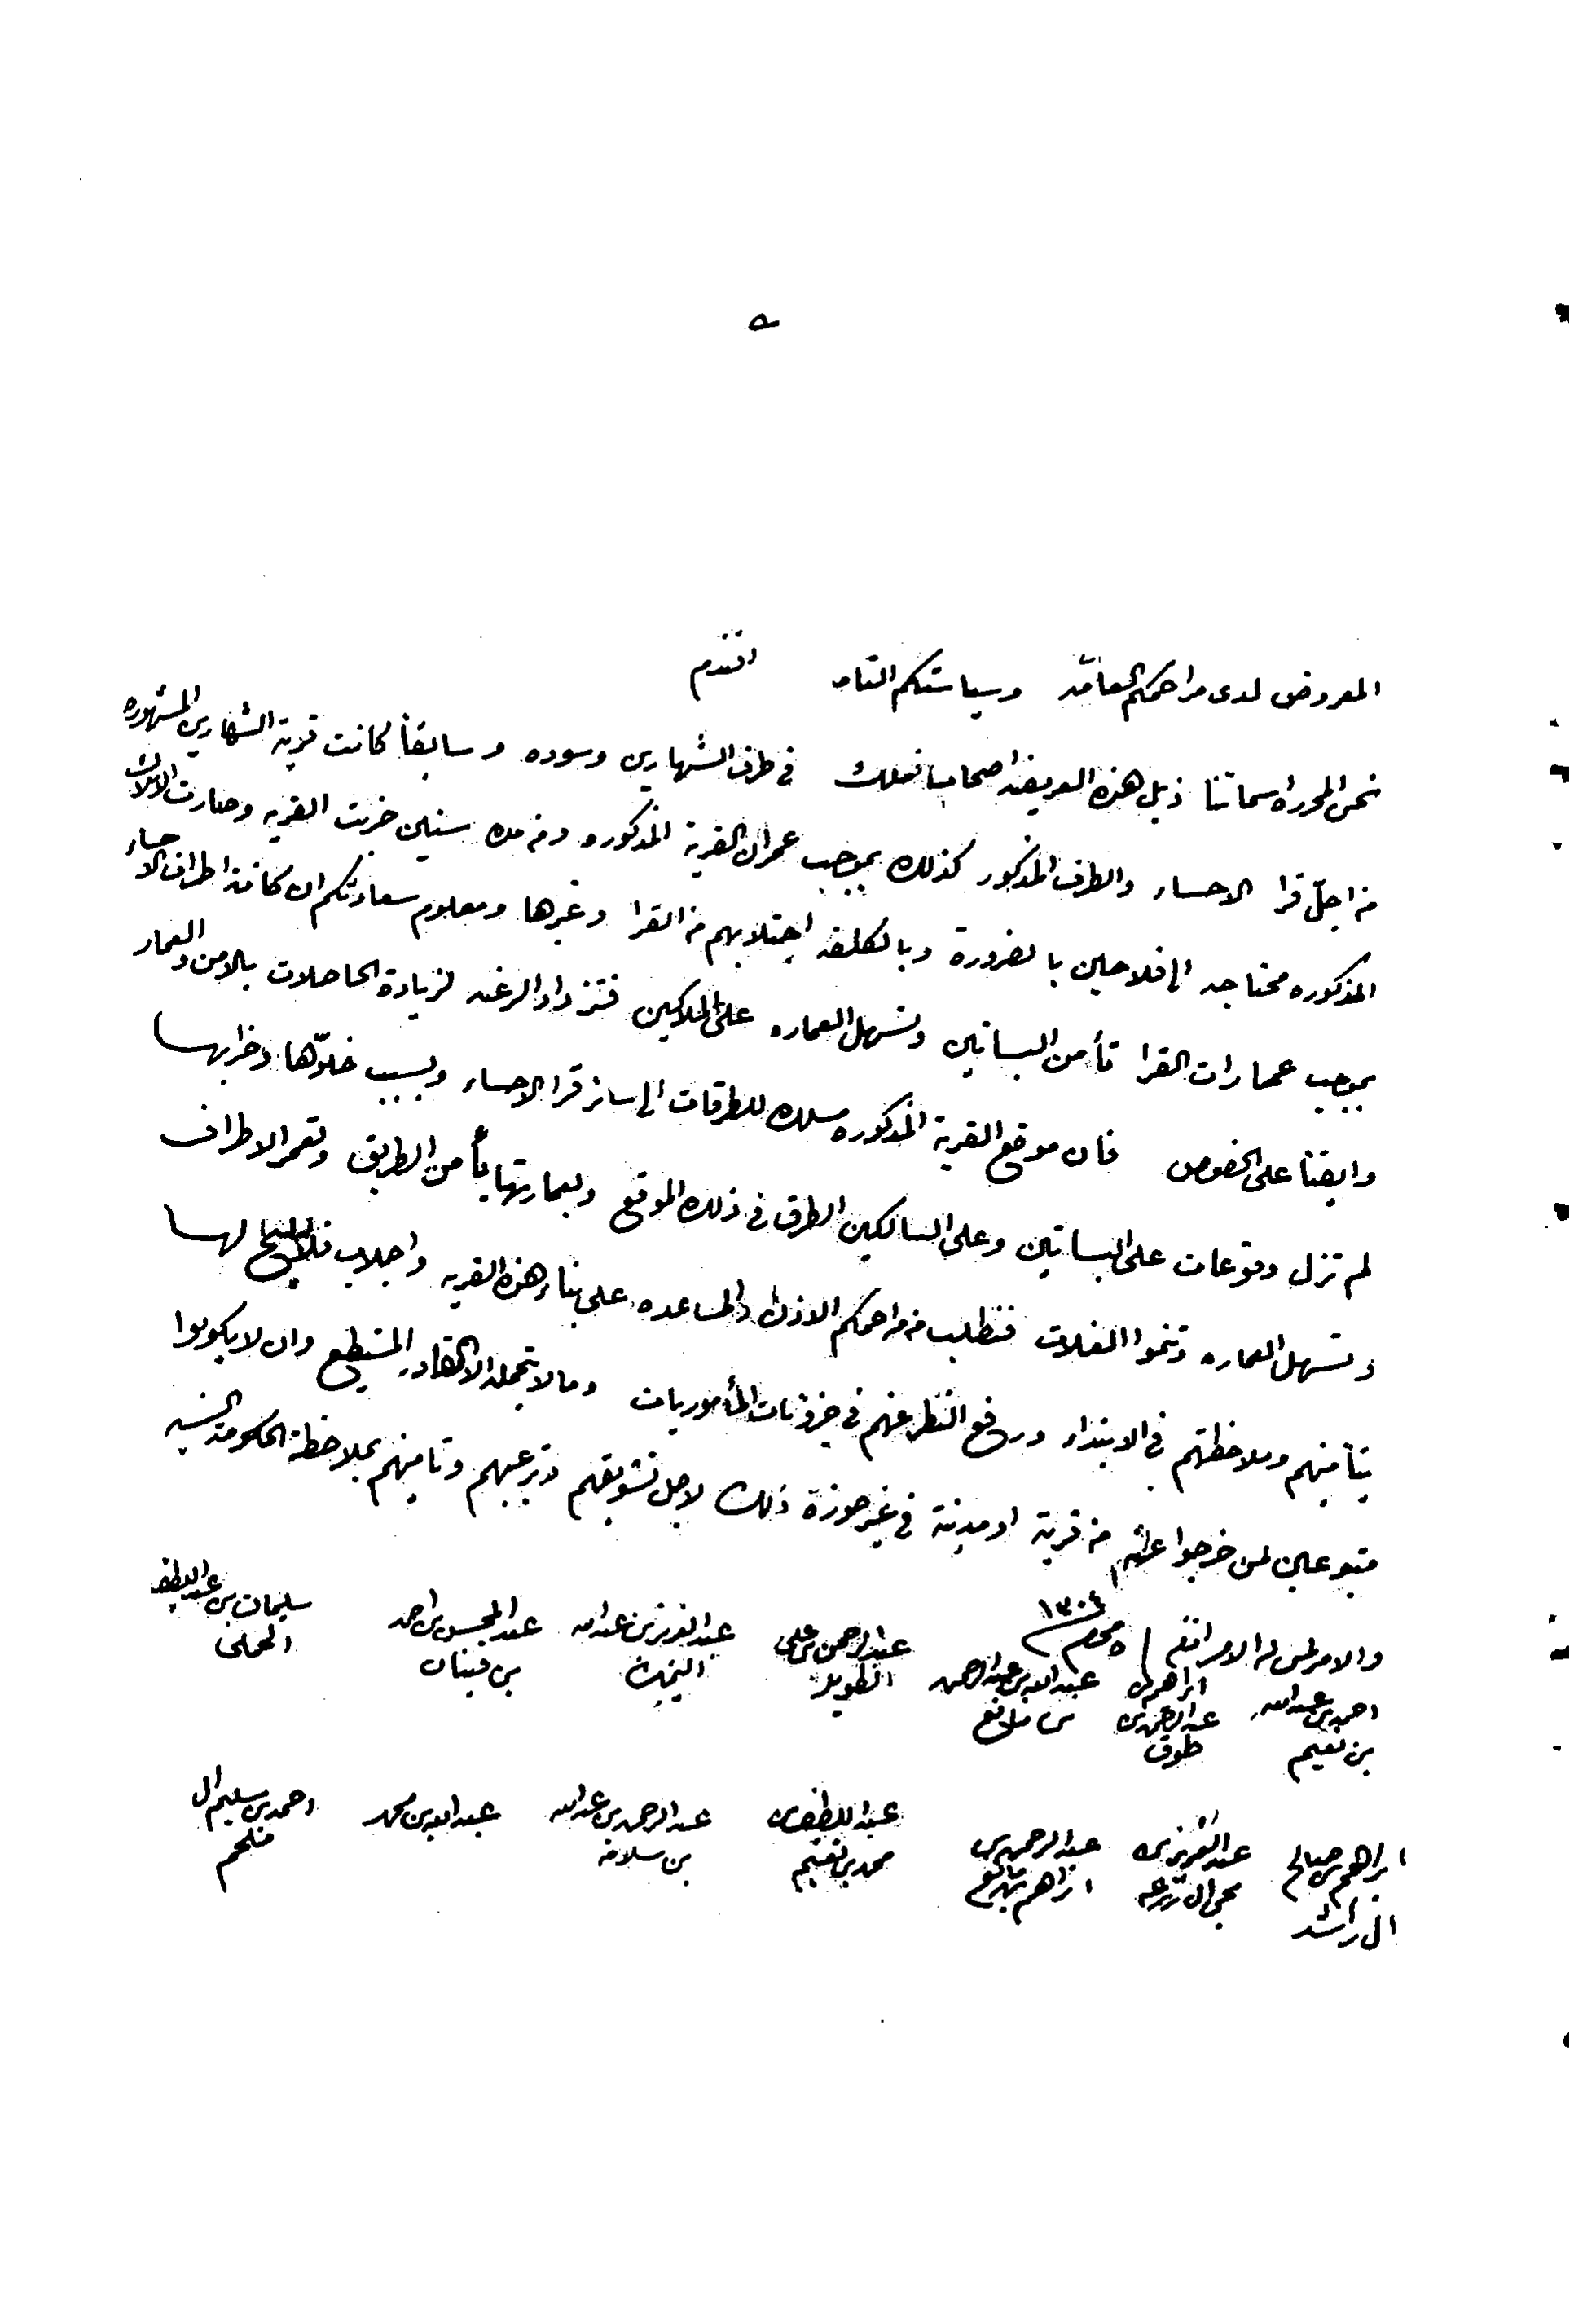 المعروض لدى مراحمكم العامّه وسياستكم التامه افندم
نحن المحرره اسمائنا ذيل هذه العريضه اصحاب املاك في طرف الشهارين وسوده وسابقاً كانت قرية الشهارين المشهوره
من اجلّ قرا الاحساء والطرف المذكور كذلك بموجب عمران القرية المذكوره ومن مدة سنين خربت القريه وصارت الاملاك
المذكوره محتاجه الى فلاحين بالضرورة وبالكلفه اجتلابهم من القرا وغيرها ومعلوم سعادتكم ان كافة اطراف الاحساء
بموجب عمارات القرا تأمن البساتين وتسهل العماره على الملاكين فتزداد الرغبه لزيادة الحاصلات بالامن والعمار
وايضاً على الخصوص فان موقع القرية المذكوره مسلك للطرقات الى سائر قرا الاحساء وبسبب خلوّها وخرابها
لم تزل وقوعات على البساتين وعلى السالكين الطرق في ذلك الموقع وبعمارتها يأمن الطريق وتعمر الاطراف
وتسهل العماره وتنموا الغلات فنطلب من مراحمكم الاذن والمساعده على بناء هذه القريه واجلاب فلاليح لها
بتأمينهم وملاحظتهم في الابتداء ورفع النظر عنهم في جزؤيات المأموريات وما لا يتحمله الا القادر المستطيع وان لا يكونوا
متبوعين لمن خرجوا عنهم من قرية او مدينة في غير حوزة ذلك لاجل تشويقهم وترغيبهم وتامينهم بملاحظة الحكومة السنيه
والامر لمن له الامر افندم محرم ١٣٠٤
احمد بن عبدالله بن نعيم ابراهيم بن عبدالرحمن بن طوق عبدالله بن عبدالرحمن بن مانع عبدالرحمن بن علي الطويل عبدالعزيز بن عبدالله عبدالمحسن بن احمد سليمان بن عبداللطيف
ابراهيم بن صالح ال راشد عبدالعزيز بن عبدالرحمن بن ابراهيم بن مانع عبداللطيف بن محمد بن نعيم عبدالرحمن بن عبدالله بن سلامه عبدالله بن محمد احمد بن سليم ال ملحم